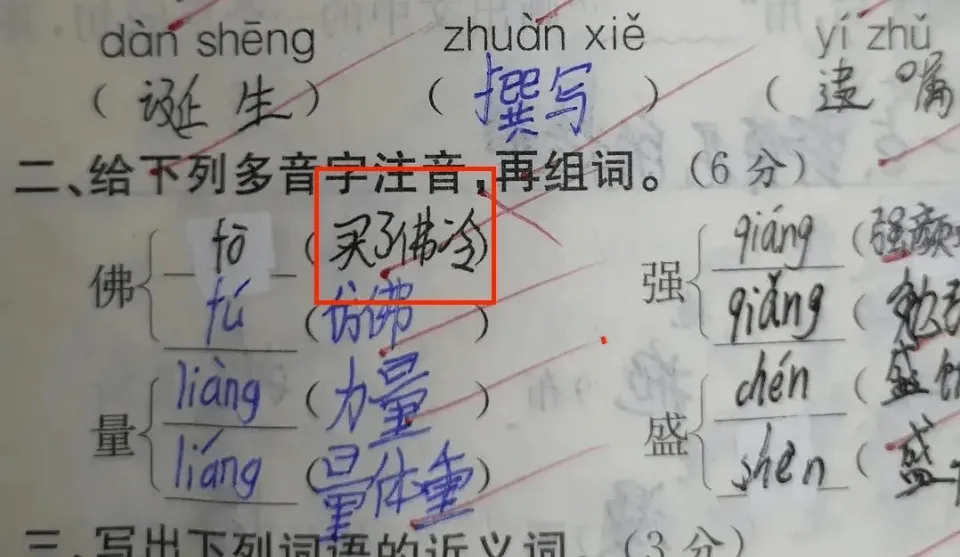 dàn shēng zhuàn xiě yí zhǔ
(诞生) (撰写) (遗嘱
二、给下列多音字注音,再组词。(6分)
佛 fō (买了佛冷) 强 qiáng (强颜
fú (仿佛) qiǎng (勉
量 liàng (力量) 盛 chén (盛
liáng (量体重) shèn (盛
三、写出下列词语的近义词。(3分)